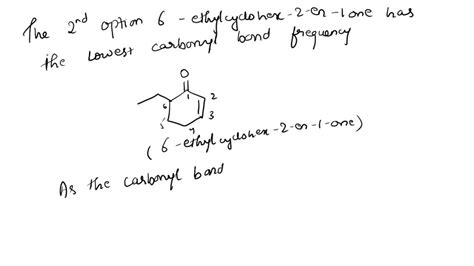 The 2nd option 6-ethylcyclohex-2-en-1one has
the lowest carbonyl band frequency
O
1
2
6
3
5
4
(6-ethylcyclohex-2-en-1-one)
As the carbonyl band